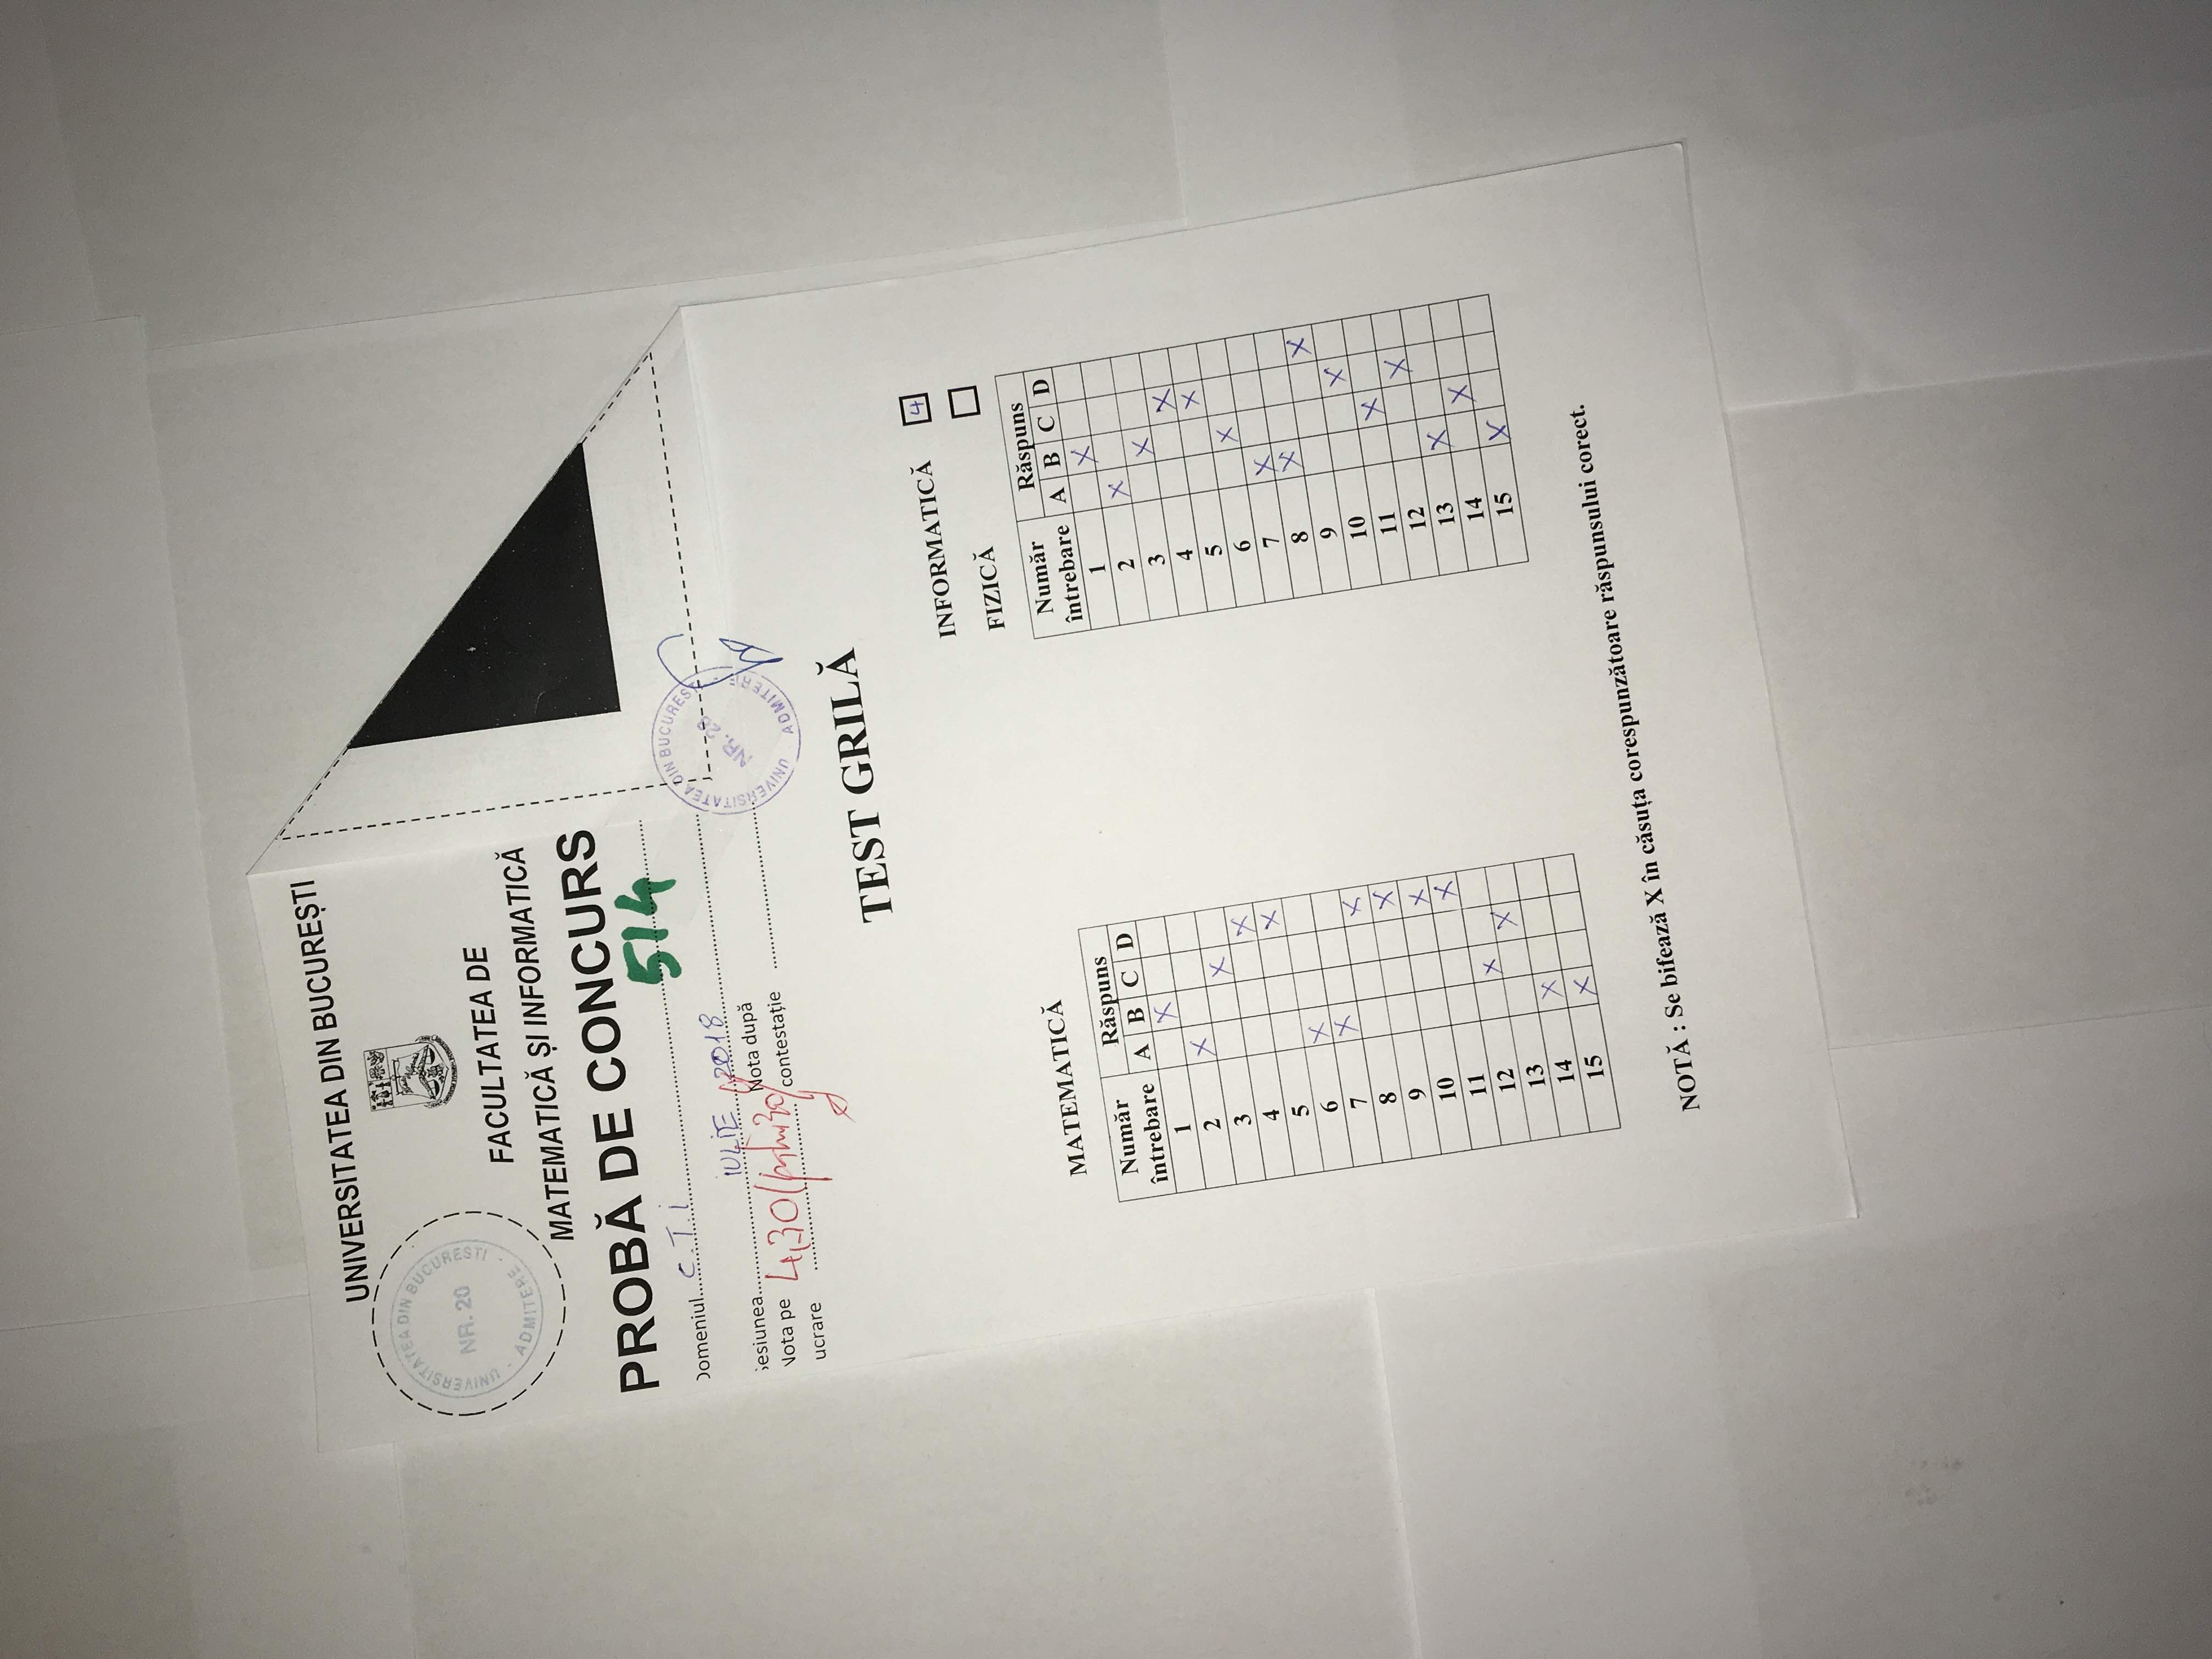 UNIVERSITATEA DIN BUCUREȘTI
UNIVERSITATEA DIN BUCURESTI - ADMITERE -
NR. 20
FACULTATEA DE
MATEMATICĂ ȘI INFORMATICĂ
PROBĂ DE CONCURS
514
Domeniul C.T.i
Sesiunea iULiE 2018
Nota pe
lucrare
4,30
Nota după
contestație
UNIVERSITATEA DIN BUCURESTI ADMITERE
TEST GRILĂ
INFORMATICĂ 4
FIZICĂ
MATEMATICĂ
Număr
întrebare
Răspuns
A B C D
1 X
2 X
3 X
4 X
5 X
6 X
7 X
8 X
9 X
10 X
11 X
12 X
13 X
14 X
15 X
Număr
întrebare
Răspuns
A B C D
1 X
2 X
3 X
4 X
5 X
6 X
7 X
8 X
9 X
10 X
11 X
12 X
13 X
14 X
15 X
NOTĂ : Se bifează X în căsuța corespunzătoare răspunsului corect.